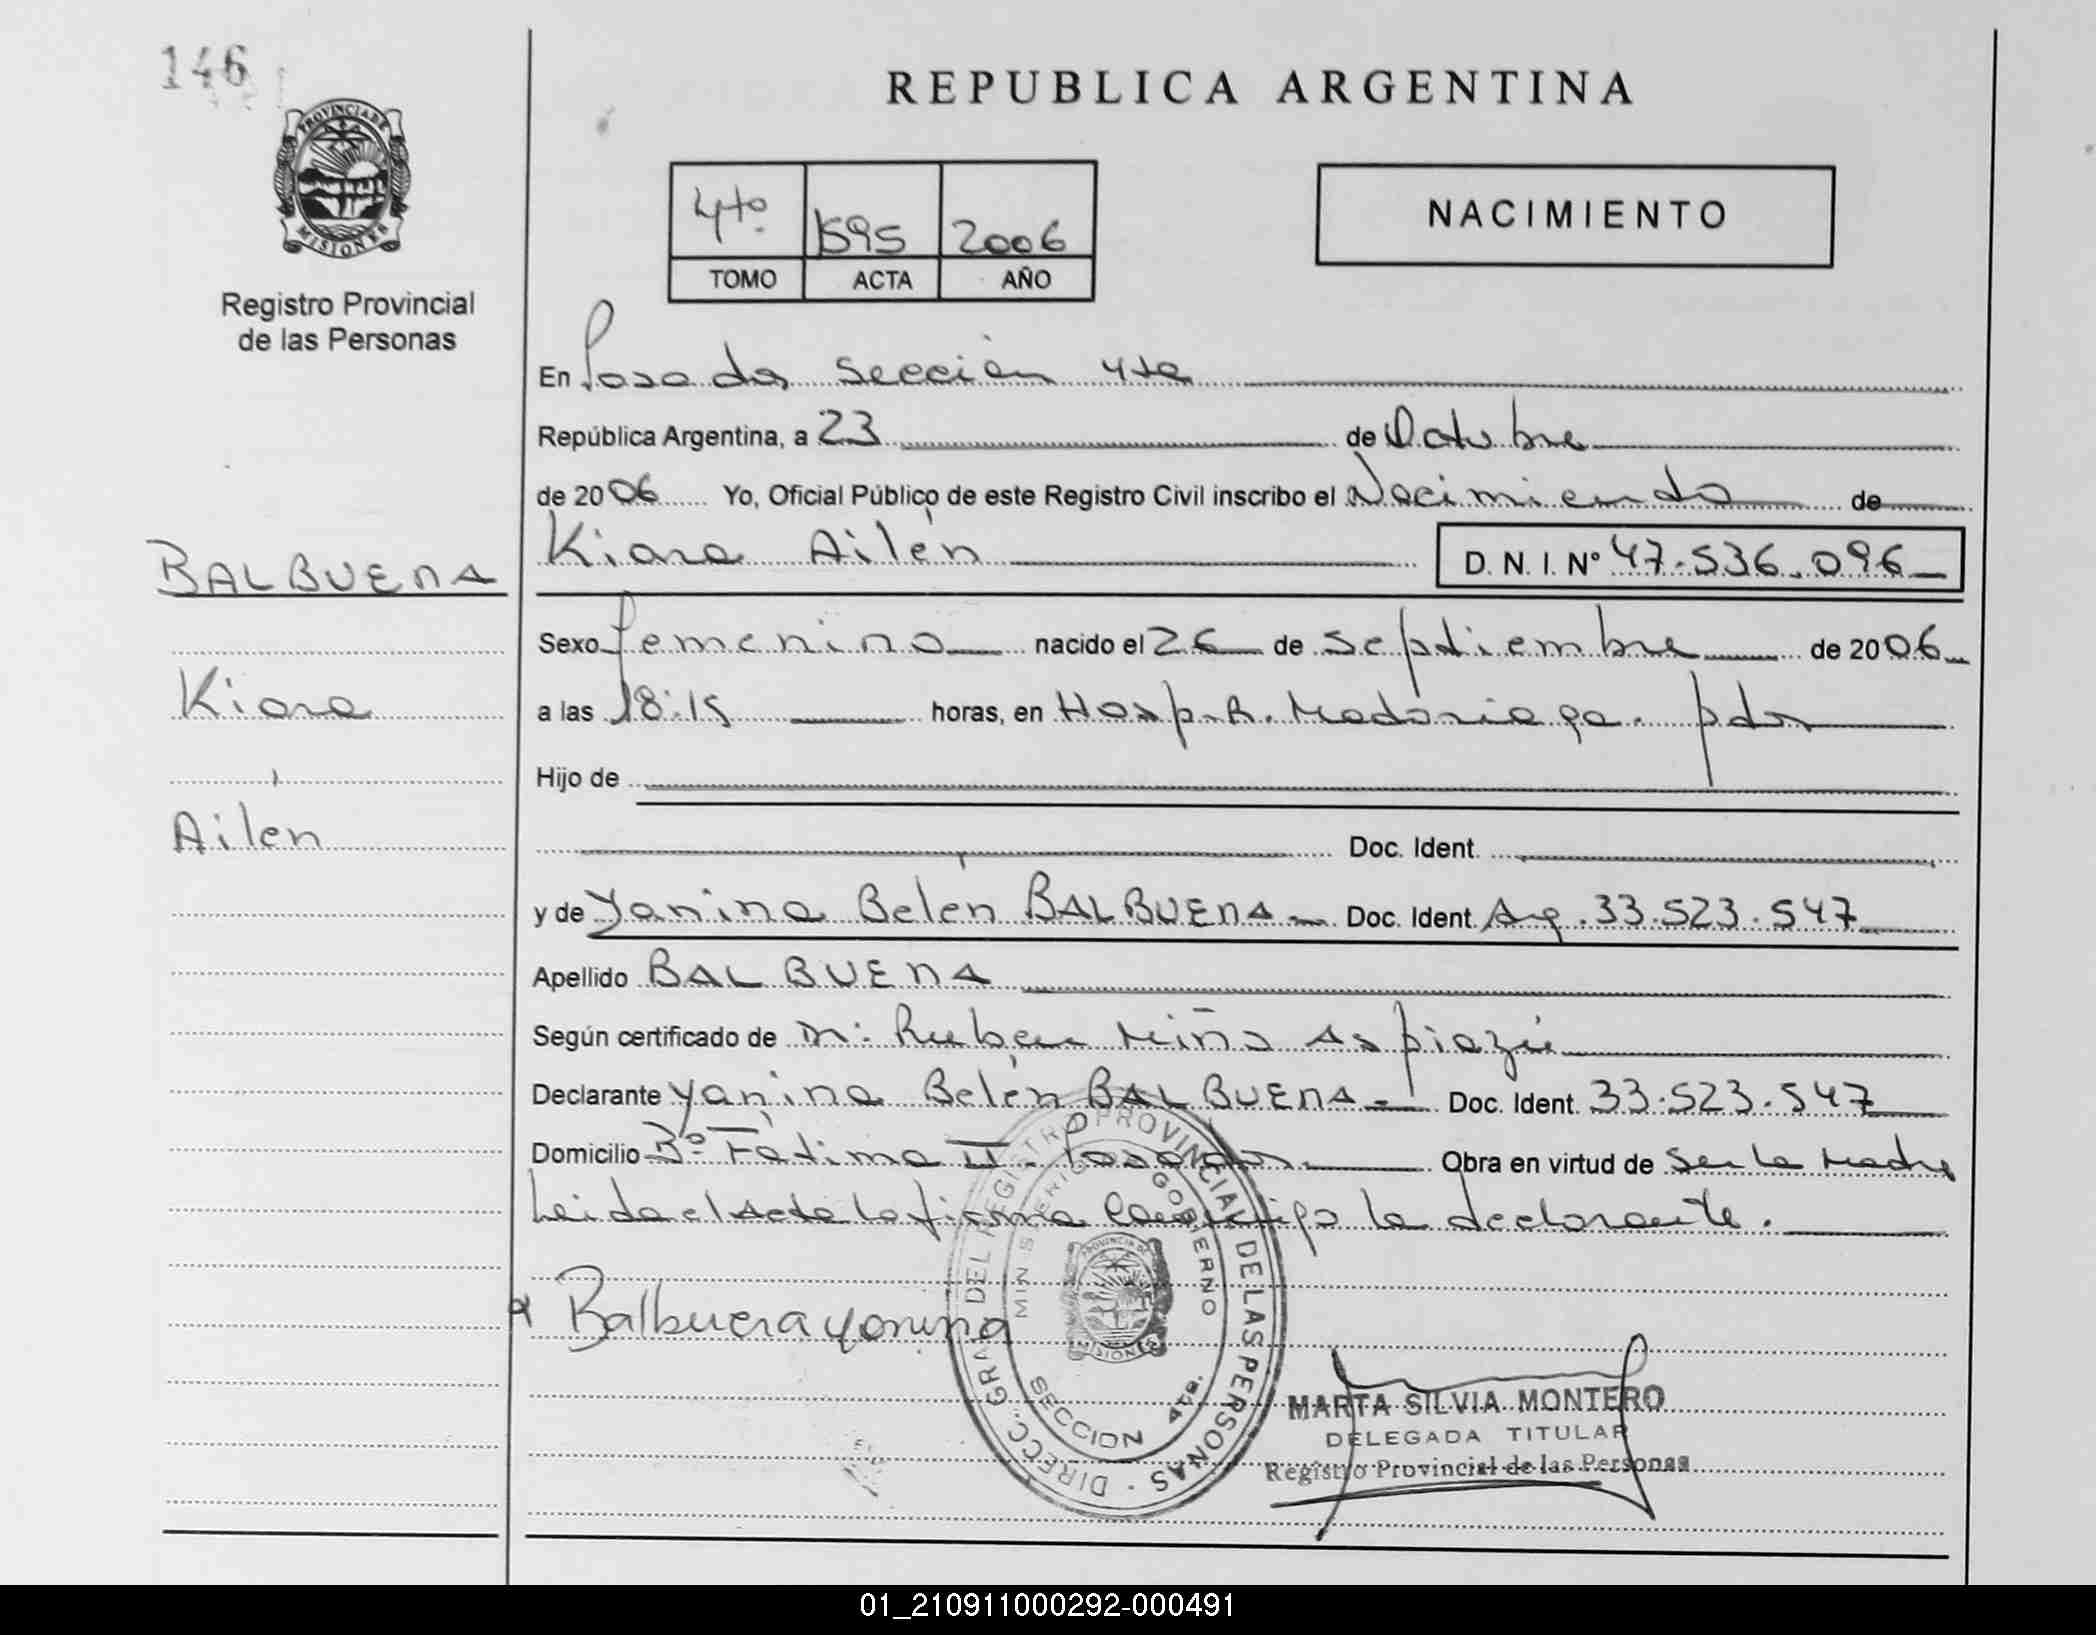 146
PROVINCIA DE
MISIONES
Registro Provincial
de las Personas
REPUBLICA ARGENTINA
4to. 1595 2006
TOMO ACTA AÑO
NACIMIENTO
En Posadas Sección 4ta
República Argentina, a 23 de Octubre
de 2006 Yo, Oficial Público de este Registro Civil inscribo el Nacimiento de
BALBUENA
Kiara Ailén D. N. I. Nº 47.536.096
Sexo femenino nacido el 26 de Septiembre de 2006
Kiara
a las 18:15 horas, en Hosp. R. Madariaga. pdas
Hijo de
Ailén
Doc. Ident.
y de Yanina Belén BALBUENA Doc. Ident. Arg. 33.523.547
Apellido BALBUENA
Según certificado de Dr: Ruben Miño Aspiazú
Declarante Yanina Belén BALBUENA Doc. Ident. 33.523.547
Domicilio Bº Fátima II. Posadas Obra en virtud de Ser la Madre
Leida el Acta la firma conmigo la declarante.
Balbuena yanina
DIRECC. GRAL. DEL REGISTRO PROVINCIAL DE LAS PERSONAS
MINISTERIO GOBIERNO
PROVINCIA DE
MISIONES
SECCION 4ta.
MARTA SILVIA MONTERO
DELEGADA TITULAR
Registro Provincial de las Personas
01_210911000292-000491